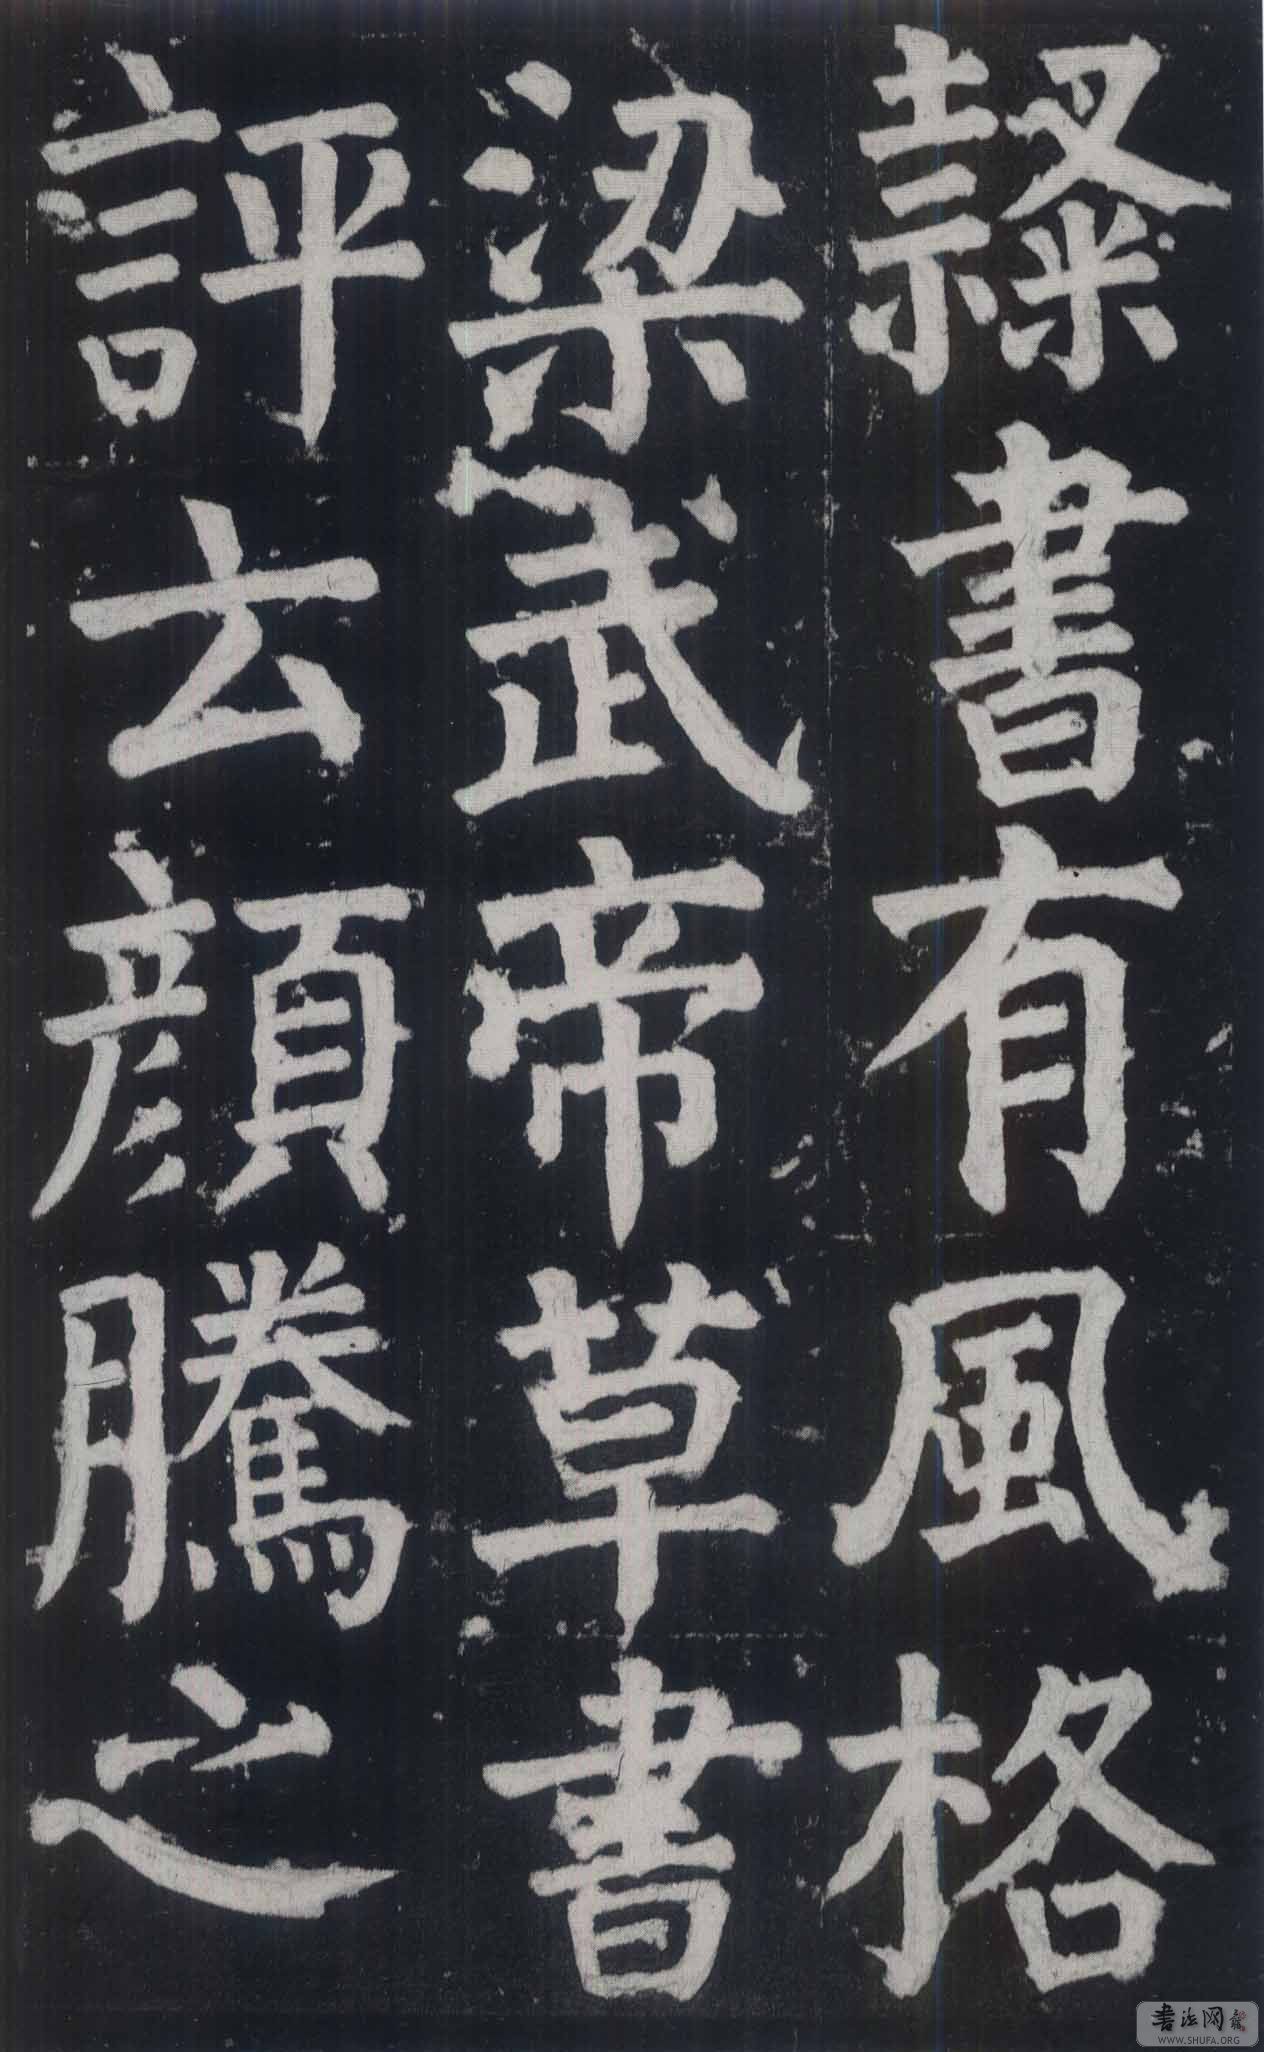 隸書有風格
梁武帝草書
評云顏騰之
書法网
WWW.SHUFA.ORG